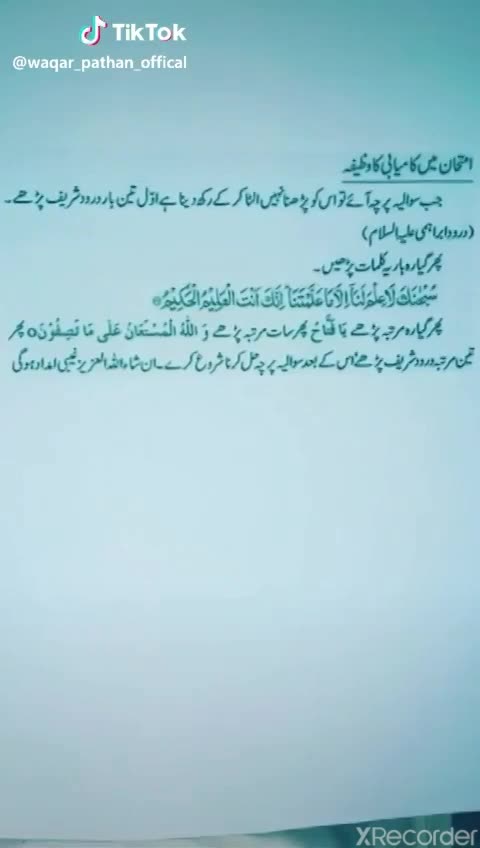 TikTok
@waqar_pathan_offical
امتحان میں کامیابی کا وظیفہ
جب سوالیہ پرچہ آئے تو اس کو پڑھنا نہیں الٹا کر کے رکھ دینا ہے اوّل تین بار درود شریف پڑھے۔
(درود ابراہمی علیہ السلام)
پھر گیارہ بار یہ کلمات پڑھیں۔
سُبْحٰنَكَ لَا عِلْمَ لَنَآ اِلَّا مَا عَلَّمْتَنَا ؕ اِنَّكَ اَنْتَ الْعَلِيْمُ الْحَكِيْمُ
پھر گیارہ مرتبہ پڑھے یَا فَتَّاحُ پھر سات مرتبہ پڑھے وَ اللّٰهُ الْمُسْتَعَانُ عَلٰی مَا تَصِفُوْنَo پھر
تین مرتبہ درود شریف پڑھے اُس کے بعد سوالیہ پرچہ حل کرنا شروع کرے۔ ان شاء اللہ العزیز غیبی امداد ہوگی
XRecorder